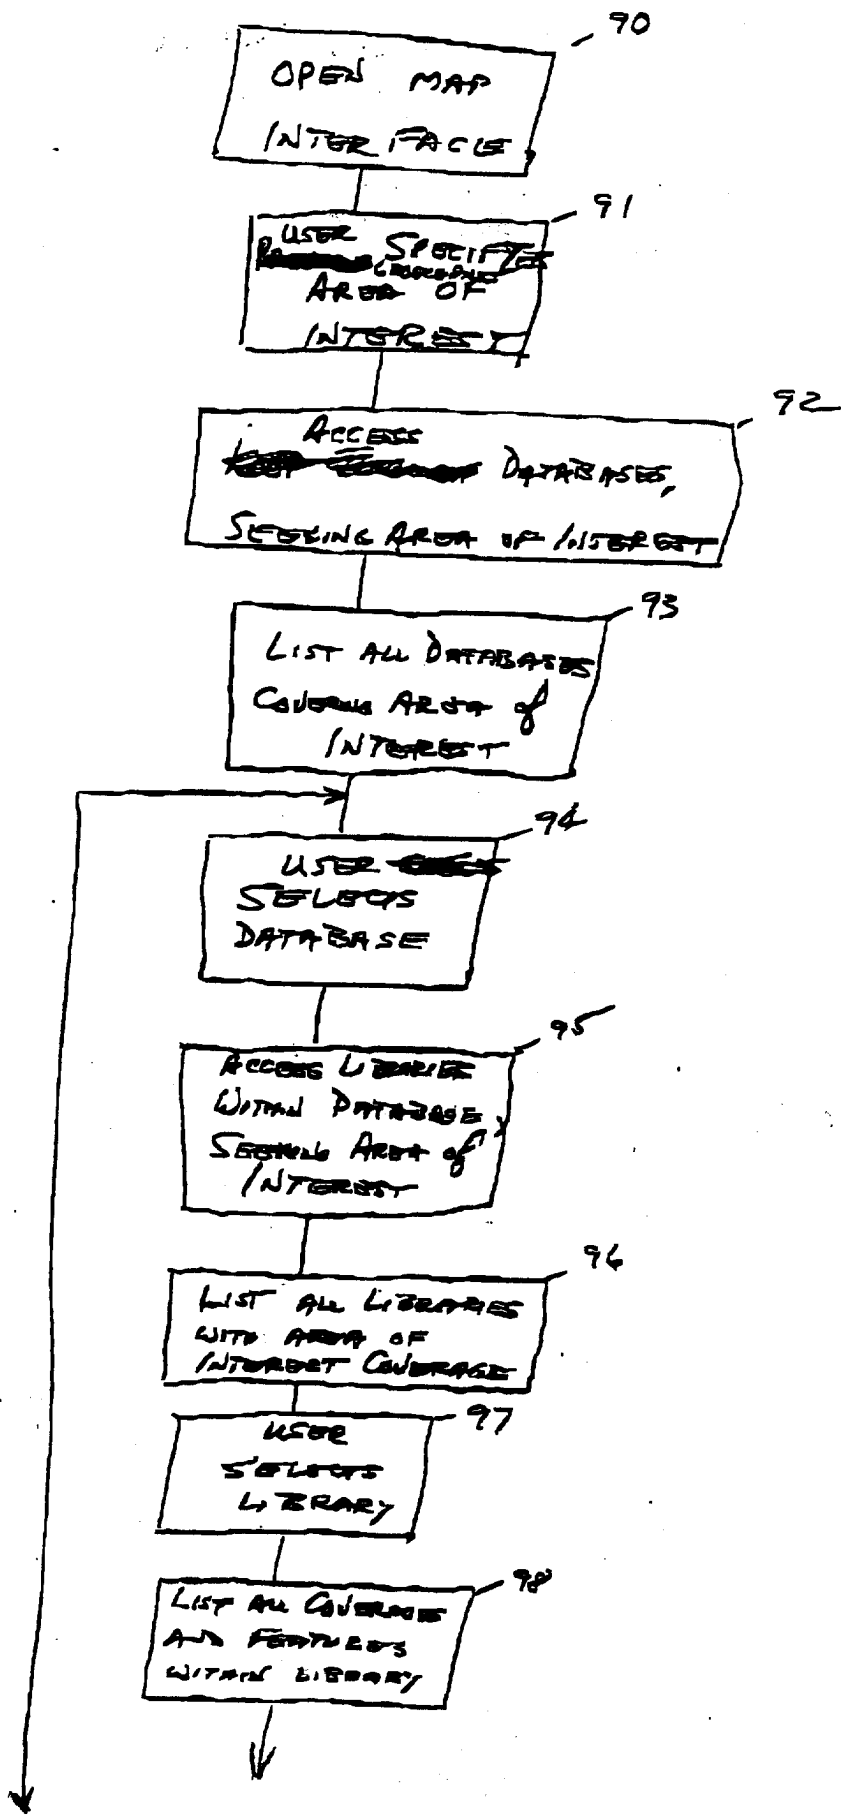 90
OPEN MAP
INTERFACE
91
USER SPECIFYES
GEOGRAPHIC
AREA OF
INTEREST
92
ACCESS
DATABASES,
SEEKING AREA OF INTEREST
93
LIST ALL DATABASES
COVERING AREA of
INTEREST
94
USER
SELECTS
DATABASE
95
ACCESS LIBRARIES
WITHIN DATABASE
SEEKING AREA of
INTEREST
96
LIST ALL LIBRARIES
WITH AREA OF
INTEREST COVERAGE
97
USER
SELECTS
LIBRARY
98
LIST ALL COVERAGES
AND FEATURES
WITHIN LIBRARY